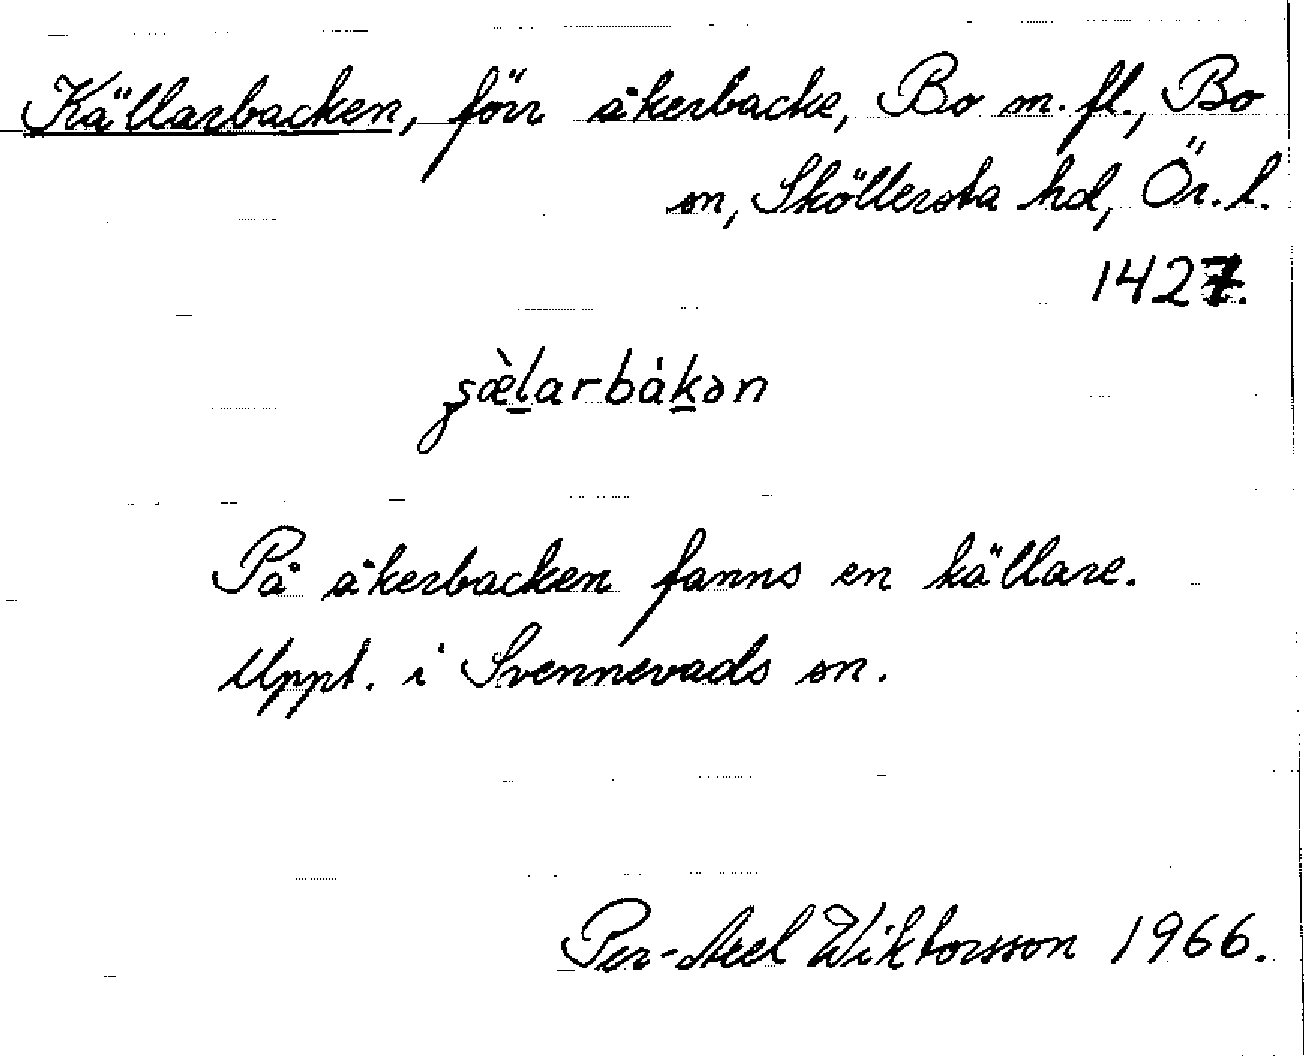 Källarbacken, förr åkerbacke, Bo m. fl., Bo
sn, Sköllersta hd, Ör. l.
1427.
På åkerbacken fanns en källare.
Uppt. i Svennevads sn.
Per-Axel Wiktorsson 1966.